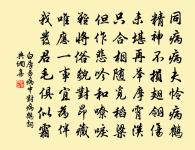 同病病夫憐病鶴
精神不損翅翎傷
未堪再舉摩霄漢
只合相隨覓稻粱
但作悲吟和嘹唳
難將俗貌對昂藏
唯應一事宜爲伴
我發君毛俱似霜
白居易病中對病鶴詩詞
典網書